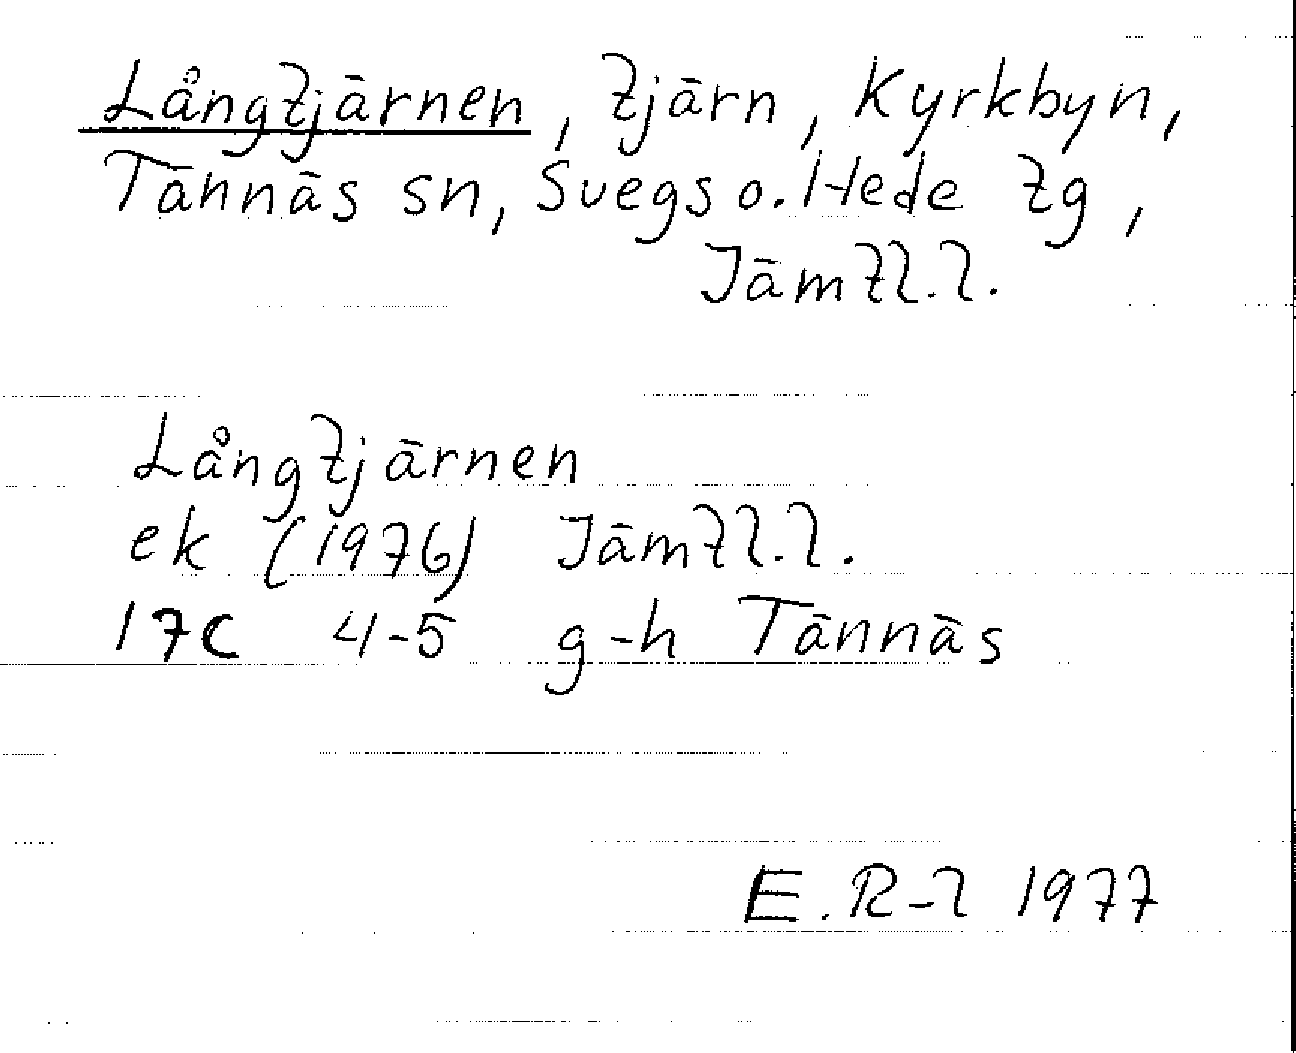 Långtjärnen, tjärn, Kyrkbyn,
Tännäs sn, Svegs o. Hede tg,
Jämtl.l.
Långtjärnen
ek (1976) Jämtl.l.
17C 4-5 g-h Tännäs
E.R-l 1977